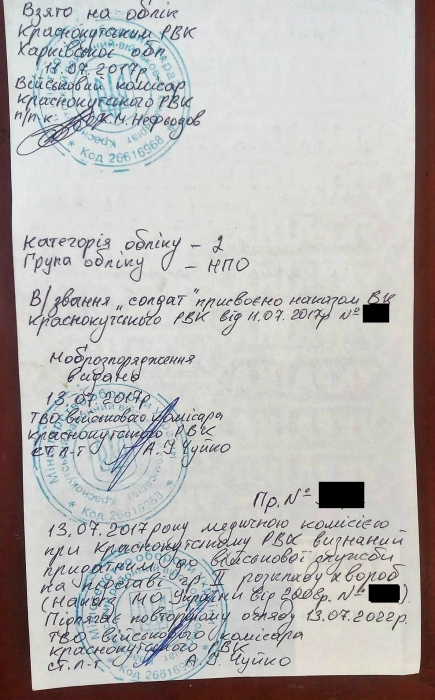 Взято на облік
Краснокутським РВК
Харківської обл.
13.07.2017р
Військовий комісар
Краснокутського РВК
п/п-к К.М. Нефьодов
* Код 26616968 *
Категорія обліку – 2
Група обліку – НПО
В/звання „солдат" присвоєно наказом ВК
Краснокутського РВК від 11.07.2017р №
Моброзпорядження
видано
13.07.2017р
ТВО військового комісара
Краснокутського РВК
ст. л-т А.І Чуйко
* Код 26616968 *
Пр. №
13.07.2017 року медичною комісією
при Краснокутському РВК визнаний
придатним до військової служби
на підставі гр. II розкладу хвороб
(Наказ МО України від 2008р. № ).
Підлягає повторному огляду 13.07.2022р.
ТВО військового комісара
Краснокутського РВК
ст. л-т А.І Чуйко